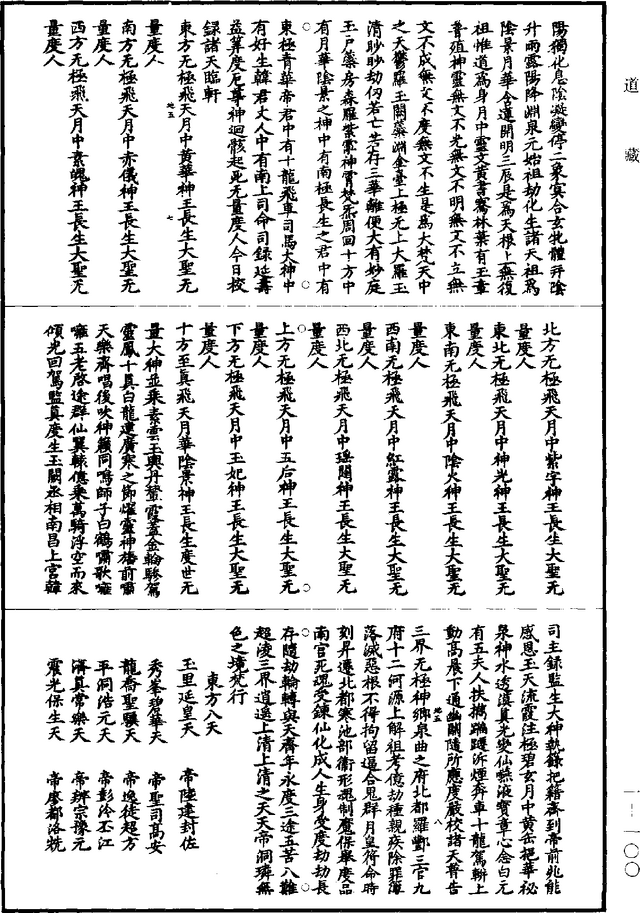 道藏
一—一〇〇
陽獨化息陰凝變停二象冥合玄牝體拜陰
升雨露陽降淵泉元始祖劫化生諸天祖爲
陰景月華含達開明三辰是爲天根上無復
祖惟道爲身月中靈文黃書騫林葉有玉章
普殖神靈無文不光無文不明無文不立無
文不成無文不度無文不生是爲大梵天中
之天鬱羅玉闕蘂淵金臺上極无上大羅玉
清眇眇劫仞若亡若存三華離便大有妙庭
玉戶藥房森羅紫電神霄梵炁周回十方中
有月華陰景之神中有南極長生之君中有
東極青華帝君中有十龍飛車司馬大神中
有好生韓君丈人中有南上司命司錄延壽
益算度厄尊神迴骸起死无量度人今日校
錄諸天臨軒
東方无極飛天月中黃華神王長生大聖无
量度人
南方无極飛天月中赤儀神王長生大聖无
量度人
西方无極飛天月中素魄神王長生大聖无
量度人
北方无極飛天月中紫字神王長生大聖无
量度人
東北无極飛天月中神光神王長生大聖无
量度人
東南无極飛天月中陰火神王長生大聖无
量度人
西南无極飛天月中紅露神王長生大聖无
量度人
西北无極飛天月中瑤關神王長生大聖无
量度人
上方无極飛天月中五后神王長生大聖无
量度人
下方无極飛天月中玉妃神王長生大聖无
量度人
十方至真飛天月華陰景神王長生度世无
量大神並乘素雲玉輿丹輦霞蓋金輪驂駕
靈鳳十真白龍建廣寒之節燿靈神旛前嘯
天樂齊唱後吹神籟同鳴師子白鶴嘯歌嗈
嗈五老啓途群仙翼轅億乘萬騎浮空而來
傾光回駕監真度生玉關丞相南昌上宮韓
司主錄監生大神執籙把籍齊到帝前兆能
感恩玉天流霞注極碧玄月中黃岳挹華祕
泉神水透濱真光變仙嚥液寶章心念白元
有五夫人扶攜蹁躚泝煙奔車十龍駕輧上
動高晨下通幽關隨所應度嚴校諸天尊告
三界无極神鄉泉曲之府北都羅酆三官九
府十二河源上解祖考億劫種親疾除罪簿
落滅惡根不得拘留逼合鬼群月皇符命時
刻昇遷北都寒池部衛形魂制魔保舉度品
南宮死魂受鍊仙化成人生身受度劫劫長
存隨劫輪轉與天齊年永度三途五苦八難
超凌三界逍遙上清上清之天天帝洞璘無
色之境梵行
東方八天
玉里延皇天 帝陸建封佐
秀峯碧華天 帝聖司高安
龍喬聖驥天 帝逸徒超方
平洞浩元天 帝彭泠丕江
濟真常樂天 帝辨宗豫元
震光保生天 帝廖都洛兟